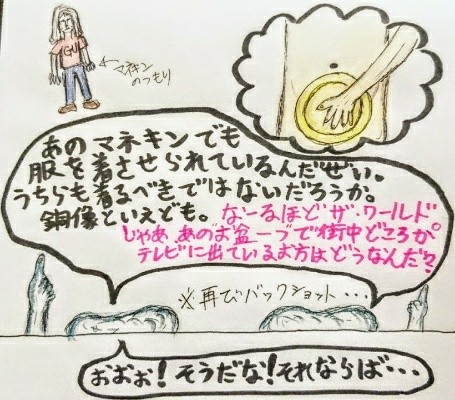 GU
←マネキン
のつもり
あのマネキンでも
服を着させられているんだぜい。
うちらも着るべきではないだろうか。
銅像といえども。なーるほど ザ・ワールド
じゃあ、あのお盆一ブで街中どころか
テレビに出ているお方はどうなんだ?
※再びバックショット・・・
おおお!そうだな!それならば・・・